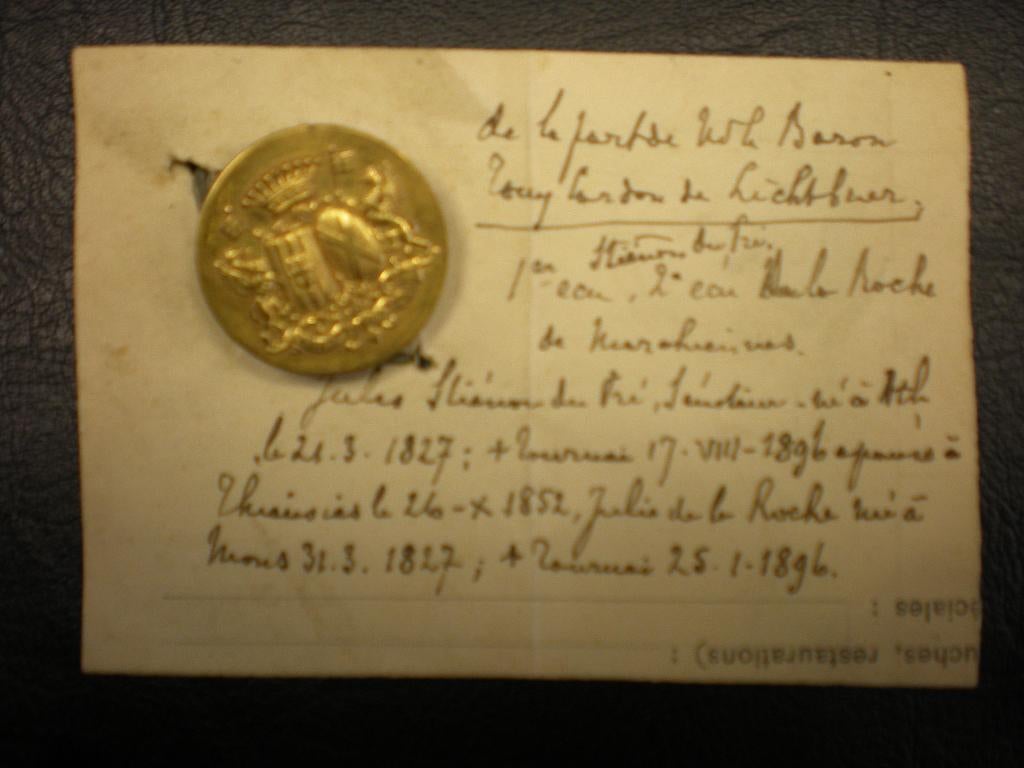 de la part de Mr le Baron
Tony Cardon de Lichtbuer.
Stiénon du Pré.
1er écu, 2e écu de la Roche
de Marchiennes.
Jules Stiénon du Pré, Sénateur - né à Ath
le 21.3.1827; + Tournai 17-VIII-1896 a épousé à
le 26-X 1852, Julie de la Roche né à
Mons 31.3.1827; + Tournai 25.1-1896.
ciales :
uches, restaurations) :